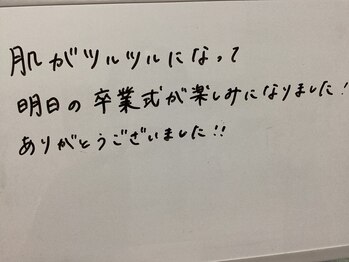 肌がツルツルになって
明日の卒業式が楽しみになりました!
ありがとうございました!!